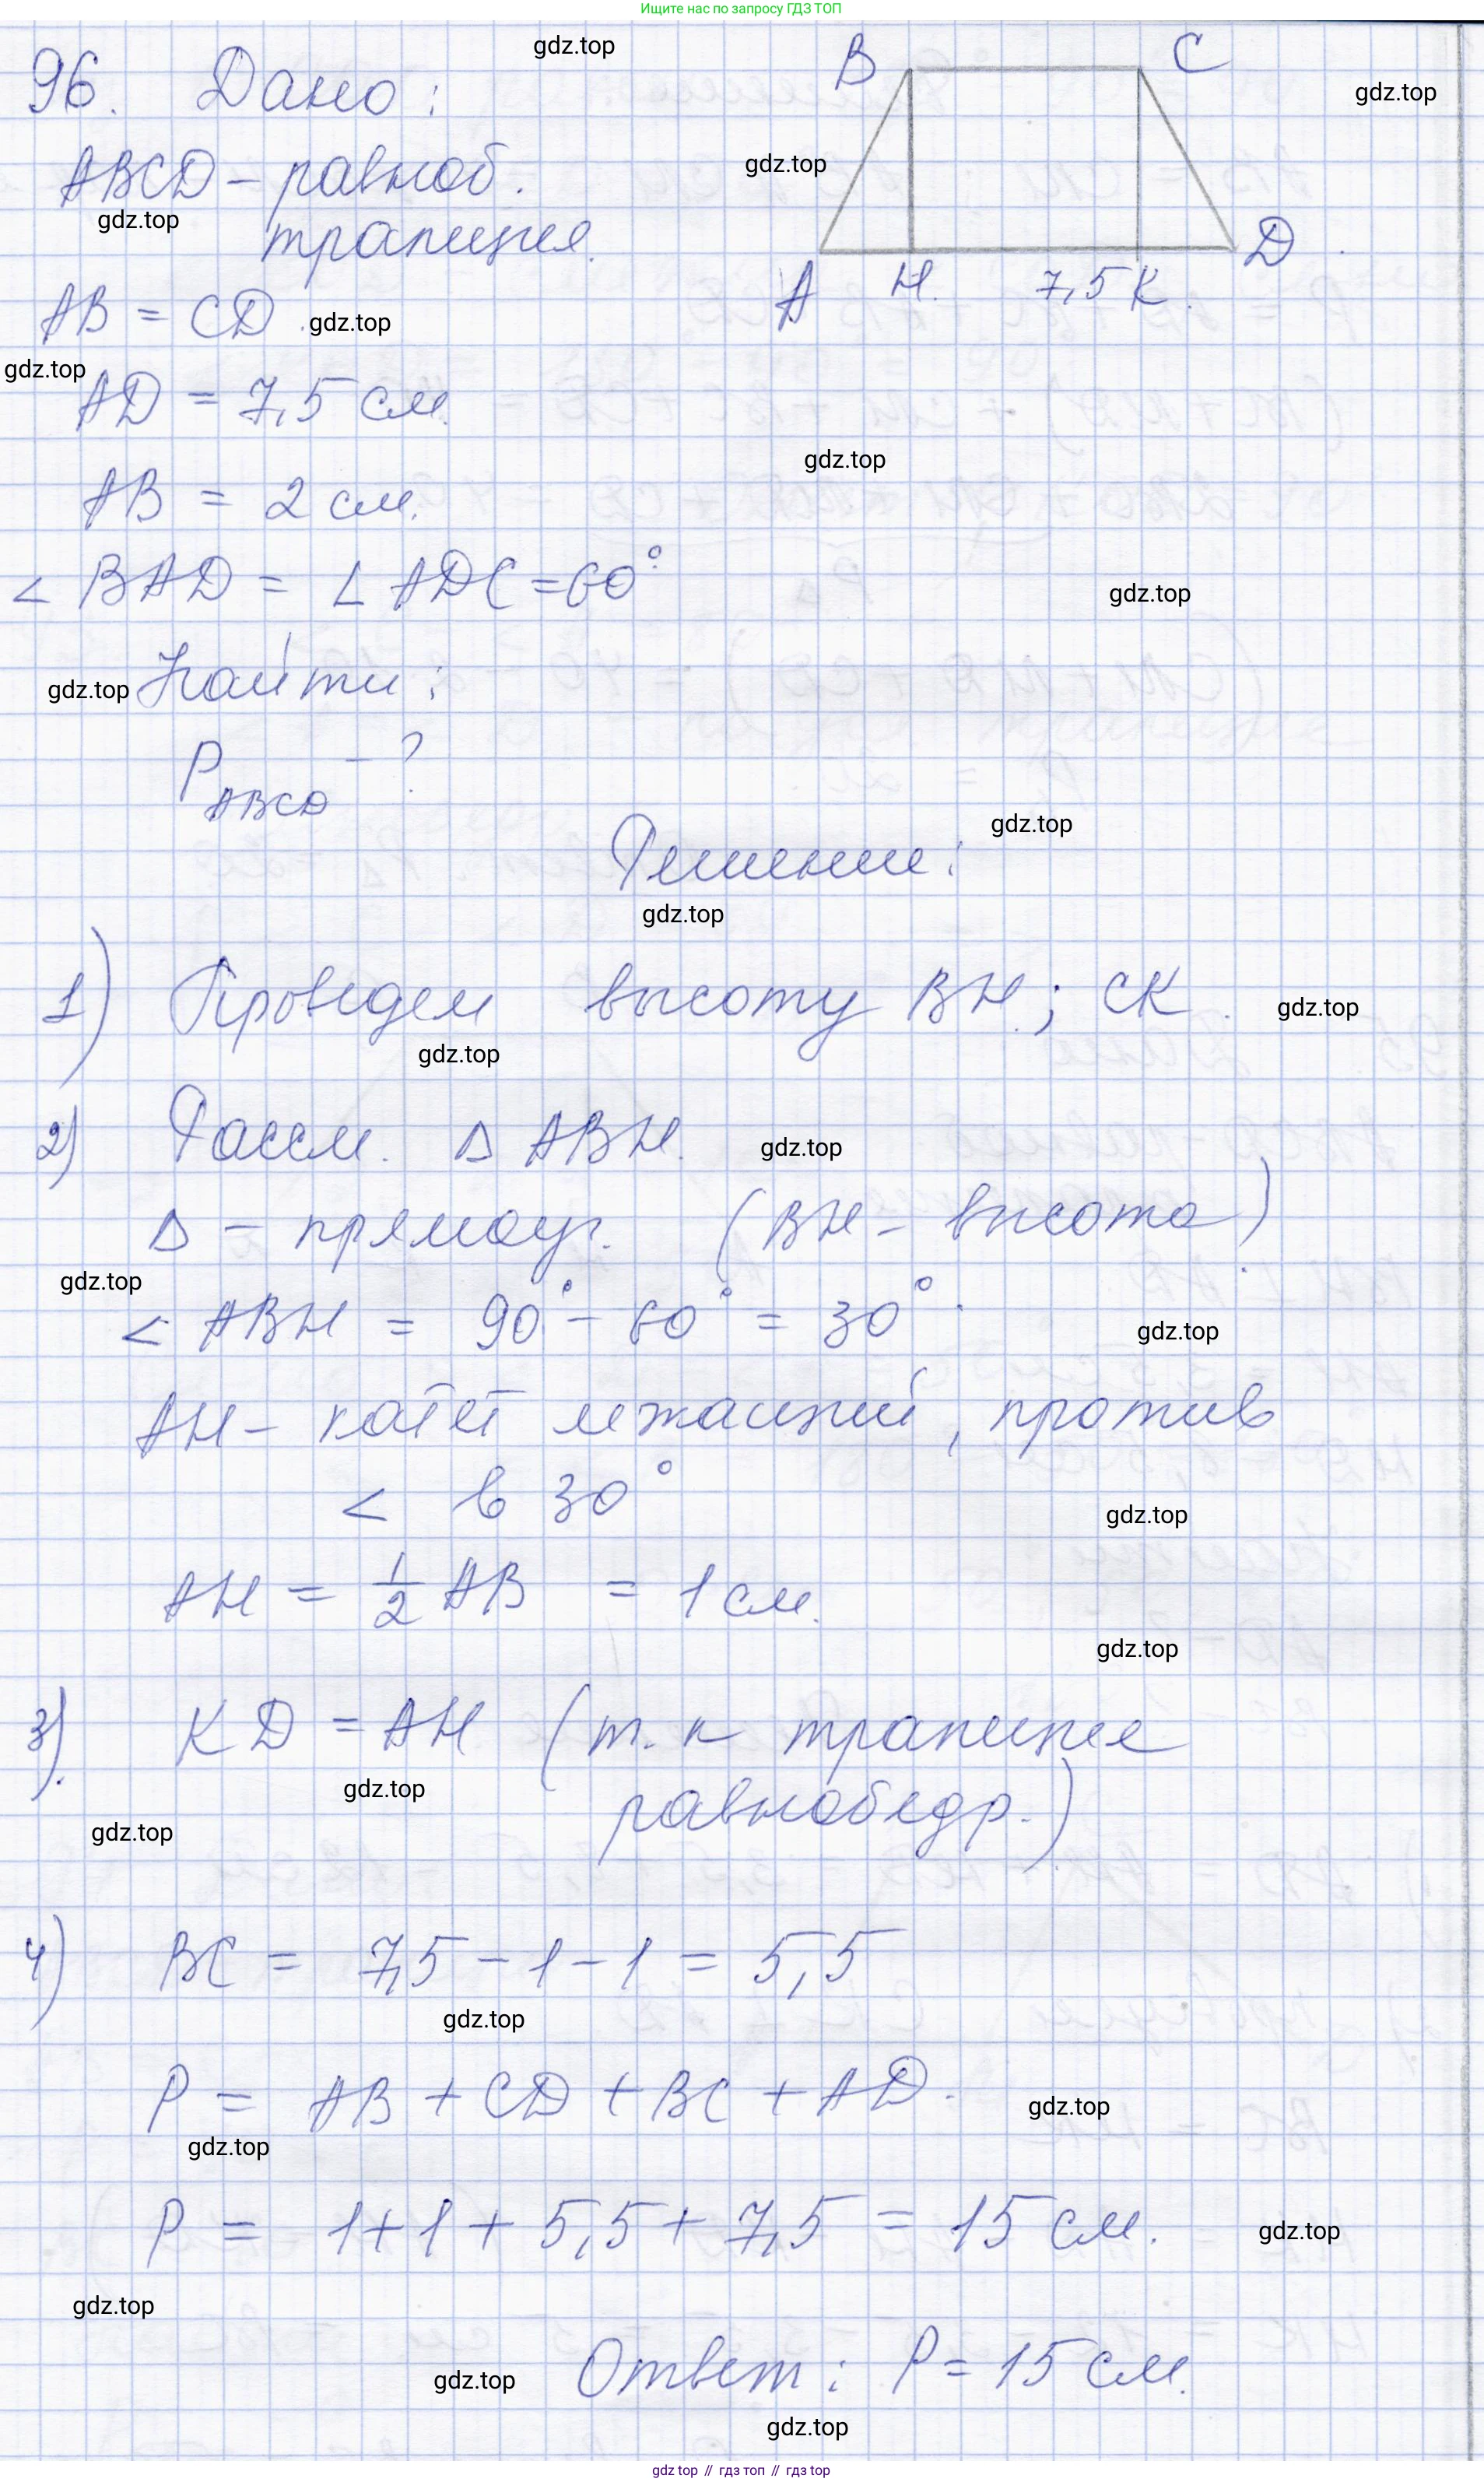 Ищите нас по запросу ГДЗ ТОП
96. Дано:
gdz.top
B C
gdz.top
ABCD - равноб.
gdz.top
gdz.top
трапеция.
A H. 7,5 K. D
AB = CD.
gdz.top
gdz.top
AD = 7,5 см.
gdz.top
AB = 2 см.
< BAD = ∠ ADC = 60°.
gdz.top
gdz.top
Найти:
P ABCD - ?
gdz.top
Решение:
gdz.top
1) Проведем высоту BH.; CK.
gdz.top
gdz.top
2) Рассм. Δ ABH.
gdz.top
Δ - прямоуг. (BH - высота).
gdz.top
< ABH = 90° - 60° = 30°.
gdz.top
AH - катет лежащий, против
< в 30°
gdz.top
AH = 1/2 AB = 1 см.
gdz.top
3). KD = AH (т.к трапеция
gdz.top
равнобедр.)
gdz.top
4) BC = 7,5 - 1 - 1 = 5,5
gdz.top
P = AB + CD + BC + AD.
gdz.top
gdz.top
P = 1 + 1 + 5,5 + 7,5 = 15 см.
gdz.top
gdz.top
Ответ: P = 15 см.
gdz.top
gdz.top
gdz top // гдз топ // gdz top